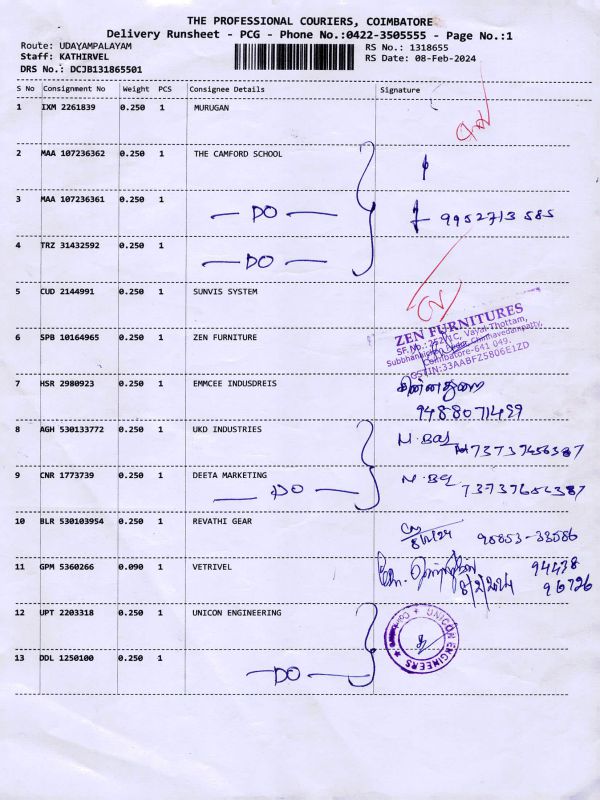 THE PROFESSIONAL COURIERS, COIMBATORE
Delivery Runsheet - PCG - Phone No.:0422-3505555 - Page No.:1
Route: UDAYAMPALAYAM
Staff: KATHIRVEL
DRS No.: DCJB131865501
RS No.: 1318655
RS Date: 08-Feb-2024
S No Consignment No Weight PCS Consignee Details Signature
1 IXM 2261839 0.250 1 MURUGAN
2 MAA 107236362 0.250 1 THE CAMFORD SCHOOL
3 MAA 107236361 0.250 1 — DO — 9952713585
4 TRZ 31432592 0.250 1 — DO —
5 CUD 2144991 0.250 1 SUNVIS SYSTEM
6 SPB 10164965 0.250 1 ZEN FURNITURE
ZEN FURNITURES
Coimbatore-641 049.
GSTIN:33AABFZ5806E1ZD
7 HSR 2980923 0.250 1 EMMCEE INDUSDREIS
9488071499
8 AGH 530133772 0.250 1 UKD INDUSTRIES
9 CNR 1773739 0.250 1 DEETA MARKETING
— DO —
10 BLR 530103954 0.250 1 REVATHI GEAR
98853-33586
11 GPM 5360266 0.090 1 VETRIVEL
8/2/2024
94438
96726
12 UPT 2203318 0.250 1 UNICON ENGINEERING
UNICON ENGINEERS
13 DDL 1250100 0.250 1 — DO —